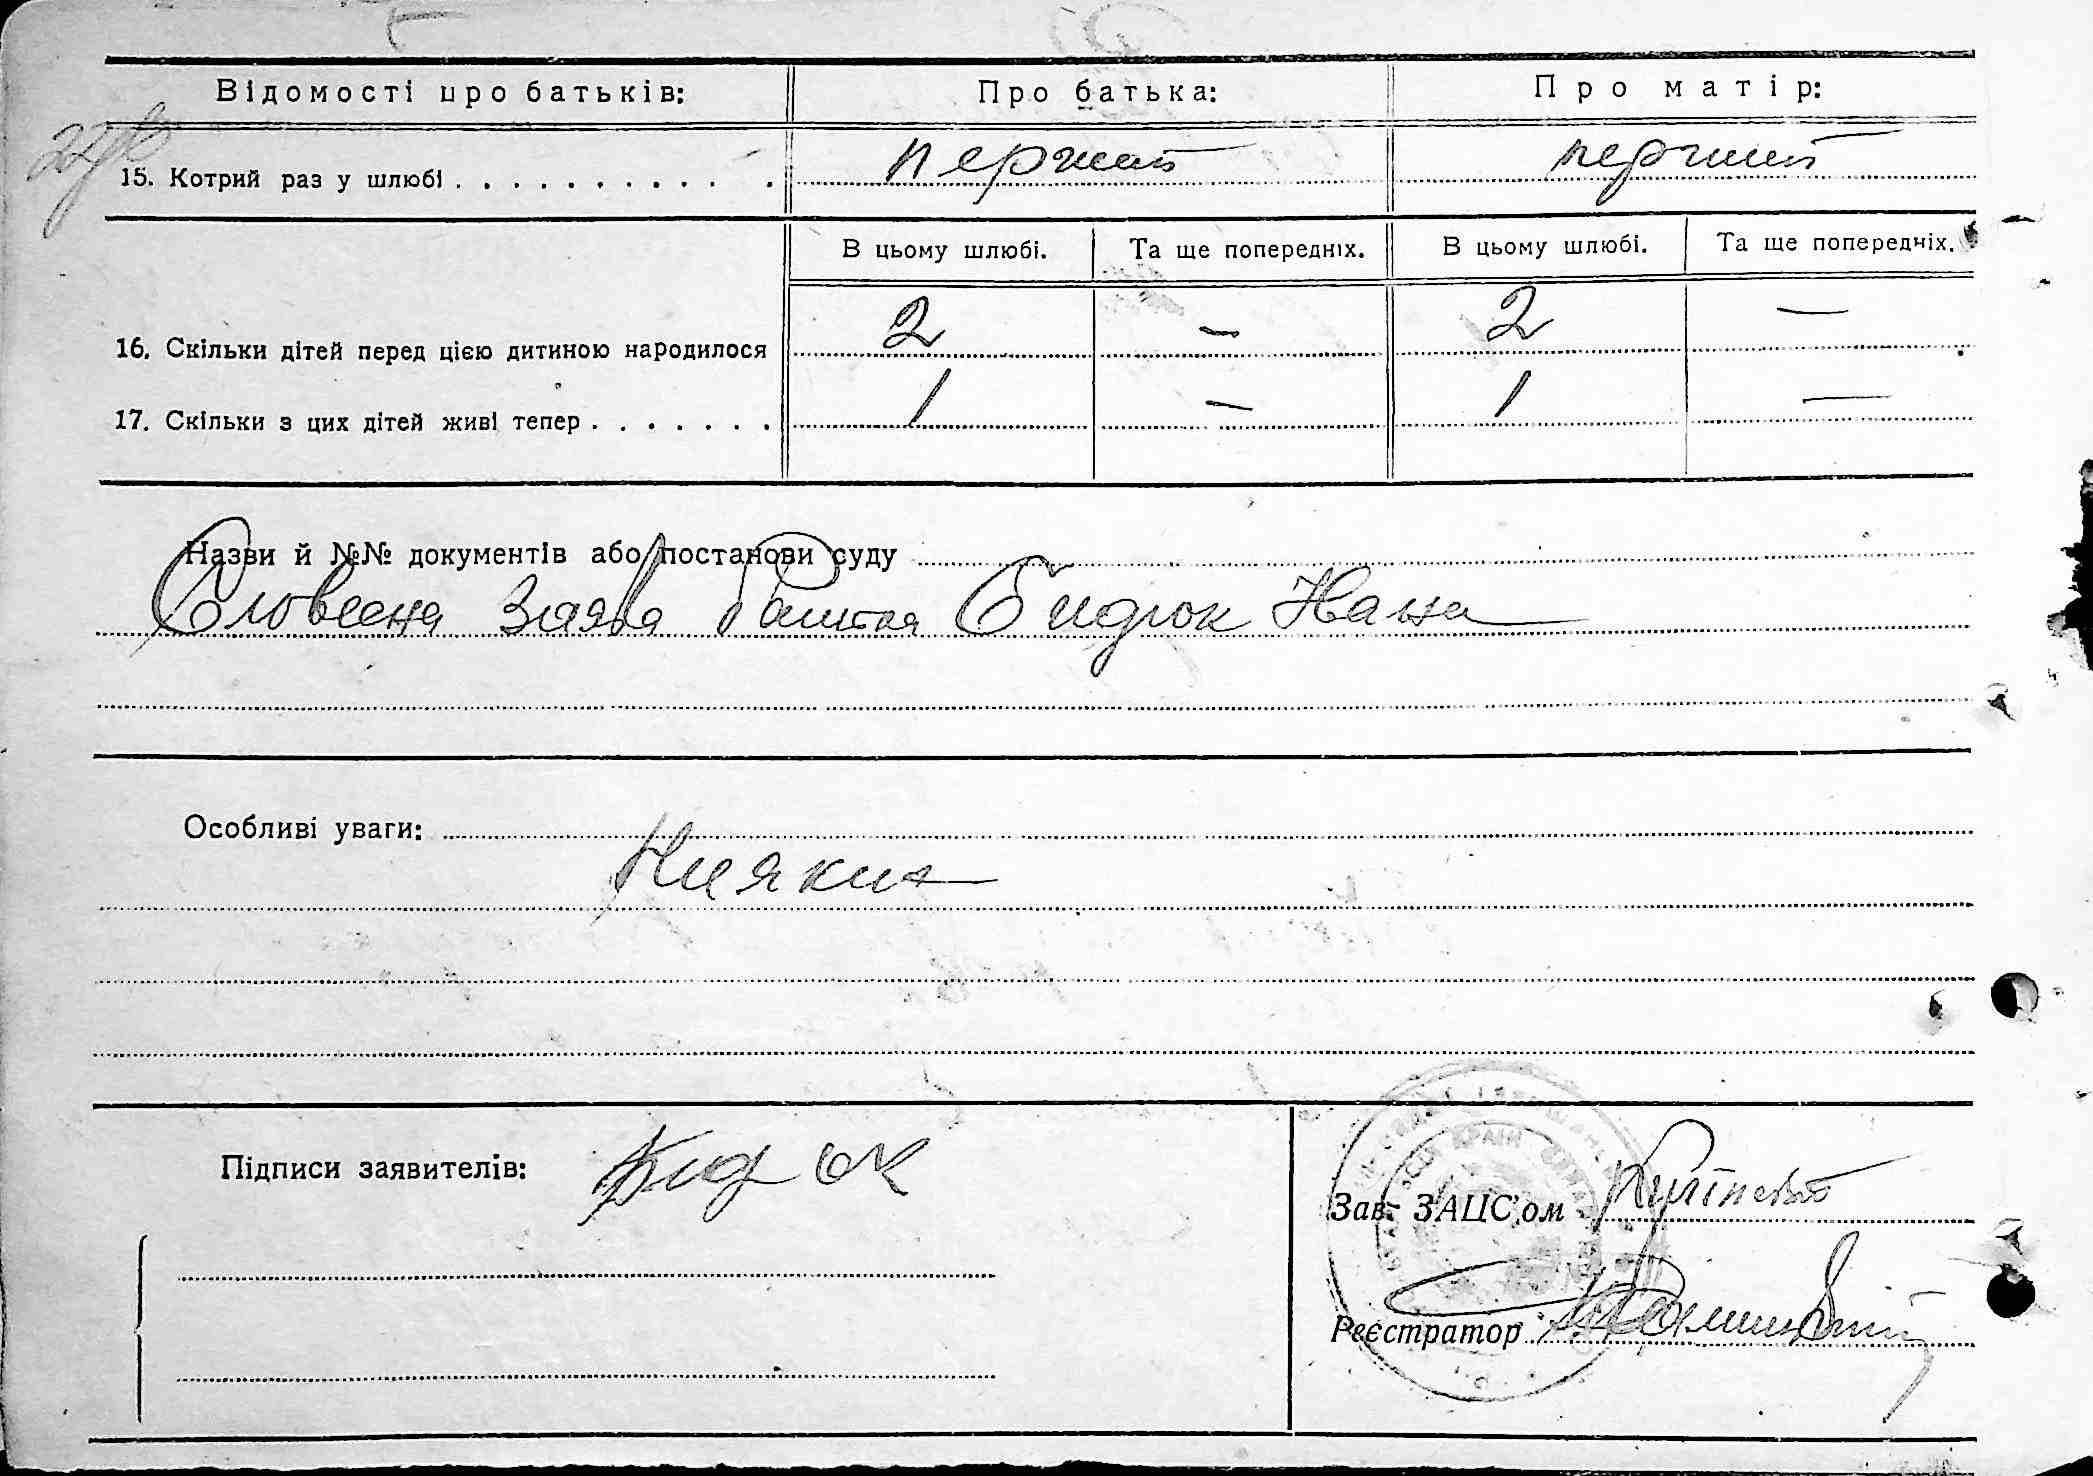 Відомості про батьків: Про батька: Про матір:
15. Котрий раз у шлюбі . . . . . . . . . . . . перший перший
В цьому шлюбі. Та ще попередніх. В цьому шлюбі. Та ще попередніх.
16. Скільки дітей перед цією дитиною народилося 2 — 2 —
17. Скільки з цих дітей живі тепер . . . . . . . 1 — 1 —
Назви й №№ документів або постанови суду
Словесна заява
Особливі уваги:
Нияких
Підписи заявителів:
Зав. ЗАЦС'ом
Реєстратор